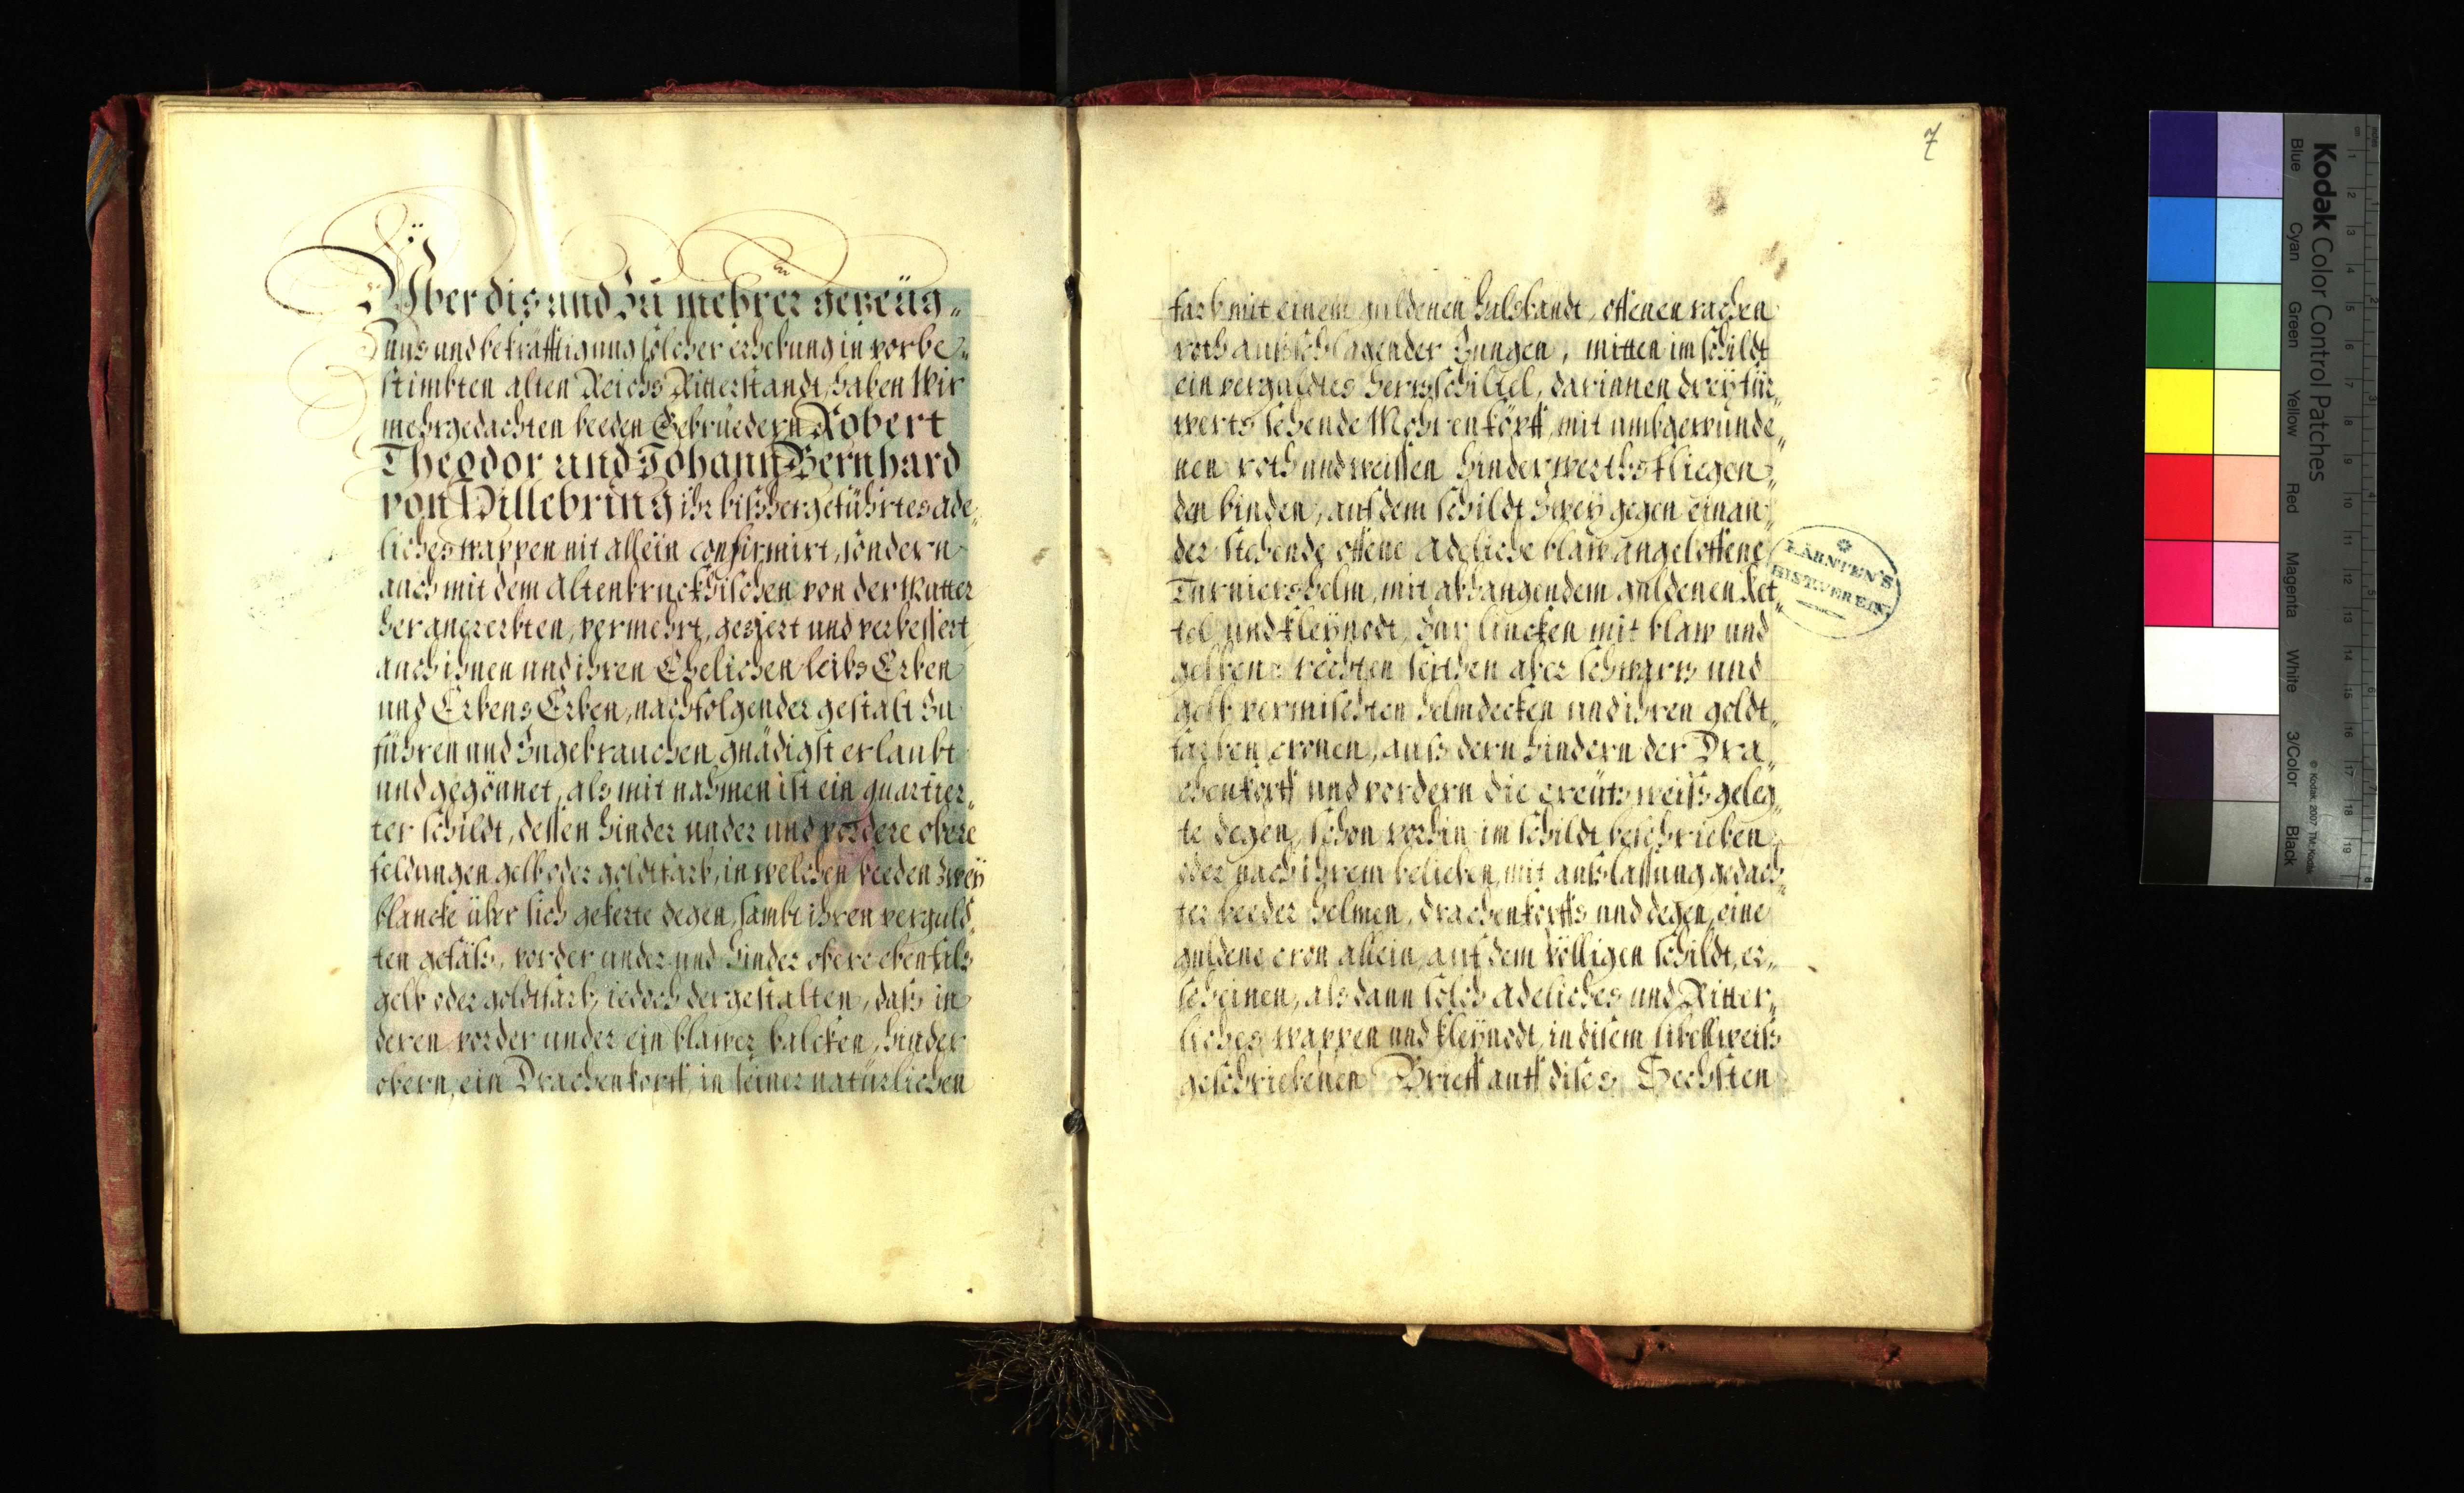 Über dis und Zu mehrer gezeüg„
Znus und bekräfftigung solcher erhebung in vorbe„
stimbten alten Reichs Ritterstandt, haben Wir
mehrgedachten beeden Gebrüedern Robert
Theodor und Johann Bernhard
von Hillebring ihr bißher geführtes ade„
liches wappen nit allein confirmirt, sondern
auch mit dem Altenbruckhischen von der Mutter
her anererbten, vermehrt, geziert und verbessert,
auch ihnen und ihren Ehelichen leibs Erben
und Erbens Erben, nachfolgender gestalt Zu
führen und Zugebrauchen gnädigst erlaubt
und gegönnet, als mit nahmen ist ein quartier„
ter schildt, dessen hinder under und vordere obere
feldungen gelb oder goldtfarb, in welchen beeden Zwey
blancke über sich gekerte degen, sambt ihren verguld„
ten gefäß, vorder under und hinder obere ebenfals
gelb oder goldtfarb, iedoch dergestalten, daß in
deren vorder under ein blawer balcken, hinder
obern, ein Drachenkopff, in seiner natürlichen
7
farb mit einem guldenen halsbandt, offenen rachen
roth außschlagender Zungen, mitten im schildt
ein verguldtes hertzschiltel, darinnen drey für„
werts sehende Mohrenköpff, mit umbgewunde„
nen roth und weissen hinderwerths fliegen„
den binden, auf dem schildt Zwey gegen einan„
der stehende offene Adeliche blaw angeloffene
Turniershelm, mit abhangendem guldenen Ket„
tel und kleynodt, Zur lincken mit blaw und
gelben rechten seithen aber schwartz und
gelb vermischten helmdecken und ihren goldt„
farben cronen, auß dern hindern der Dra„
chenkopff und vordern die creütz weiß geleg„
te degen, schon vorhin im schildt beschrieben,
oder nach ihrem belieben, mit außlassung gedach„
ter beeder helmen, drachenkopffs und degen, eine
guldene cron allein, auf dem völligen schildt, er„
scheinen, als dann solch adeliches und Ritter„
liches wappen und kleynodt, in disem libellweiß
geschriebenen Brieff auff dises Sechsten
KÄRNTEN'S
HIST. VEREIN
Kodak Color Control Patches
Blue
Cyan
Green
Yellow
Red
Magenta
White
3/Color
Black
© Kodak, 2007 TM: Kodak